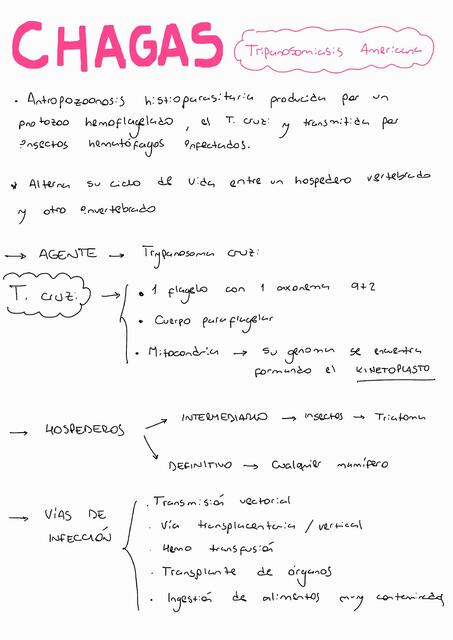 CHAGAS
Tripanosomiasis Americana
· Antropozoonosis histioparasitaria producida por un
protozoo hemoflagelado, el T. cruzi y transmitida por
insectos hematófagos infectados.
* Alterna su ciclo de vida entre un hospedero vertebrado
y otro invertebrado
→ AGENTE → Trypanosoma cruzi
T. cruzi →
• 1 flagelo con 1 axonema 9+2
• Cuerpo paraflagelar
• Mitocondria → su genoma se encuentra
formando el KINETOPLASTO
→ HOSPEDEROS
INTERMEDIARIO → insectos → Triatoma
DEFINITIVO → Cualquier mamífero
→ VÍAS DE
INFECCIÓN
· Transmisión vectorial
· Vía transplacentaria / vertical
· Hemo transfusión
· Transplante de órganos
· Ingestión de alimentos muy contaminados